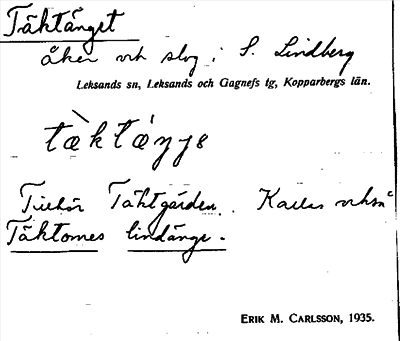 Täktänget
åker och slog i S. Lindberg
Leksands sn, Leksands och Gagnefs tg, Kopparbergs län.
tæ̀ktáŋjə
Tillhör Täktgården. Kallas också
Täktomes lindänge.
ERIK M. CARLSSON, 1935.